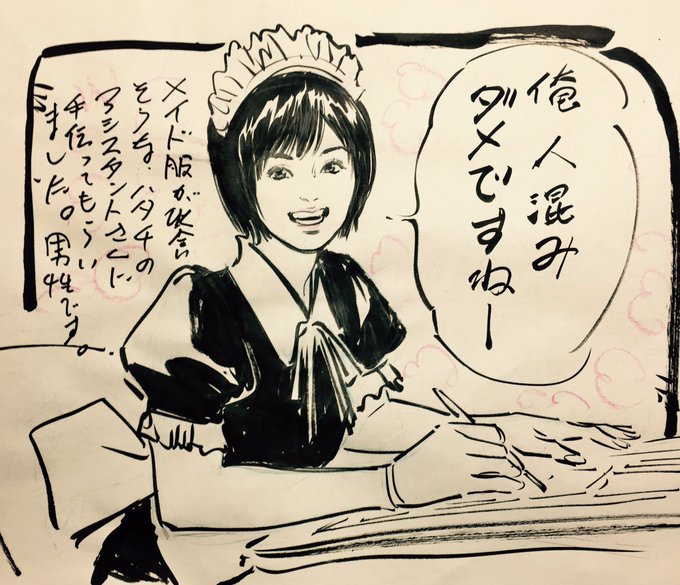 俺人混み
ダメですねー
メイド服が似合い
そうな、ハタチの
アシスタントさんに
手伝ってもらい
ました。男性です。